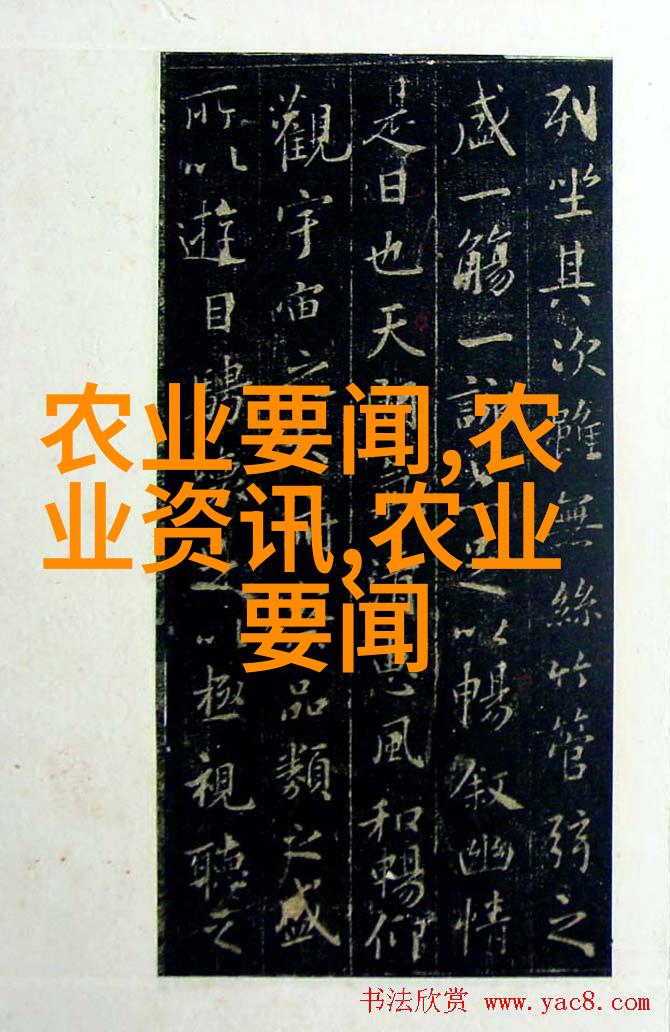 列坐其次雖無絲竹管弦之
盛一觴一以暢叙幽情
是日也天風和暢仰
觀宇宙品類之盛
所以遊目騁以極視聽之
农业要闻,农
业资讯,农业
要闻
书法欣赏 www.yac8.com